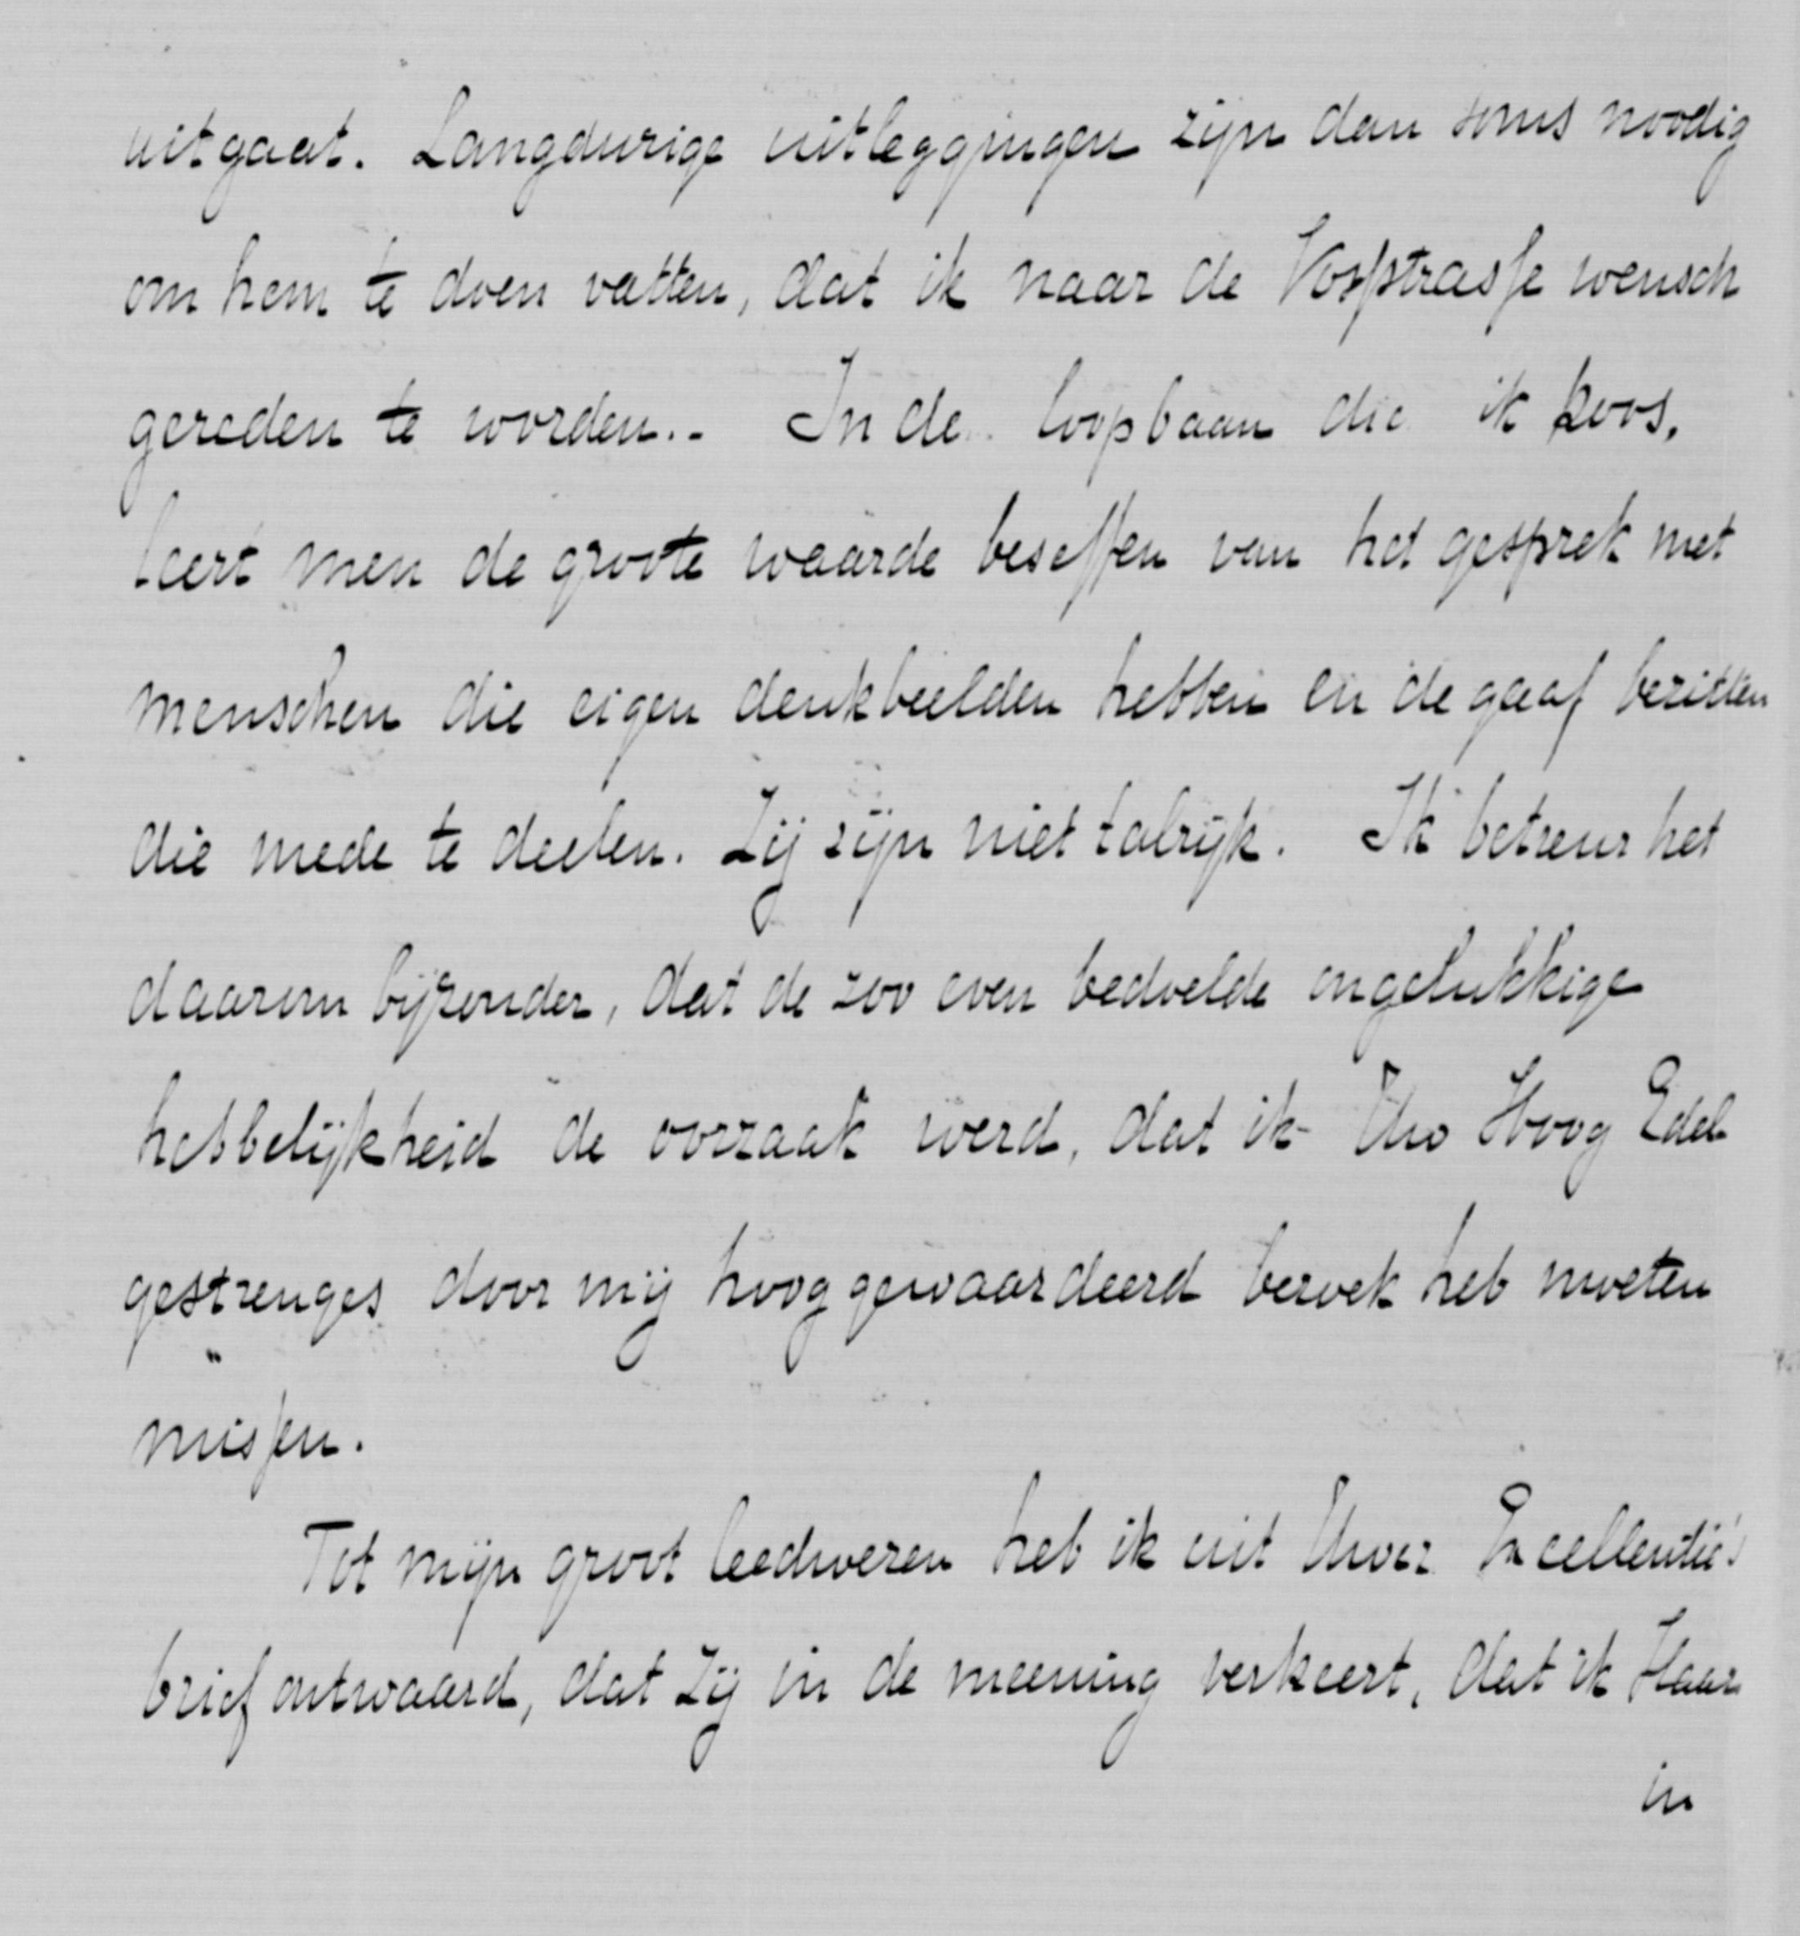 uitgaat. Langdurige uitleggingen zijn dan soms noodig
om hem te doen vatten, dat ik naar de Vosstrasse wensch
gereden te worden.. In de loopbaan die ik koos,
leert men de groote waarde beseffen van het gesprek met
menschen die eigen denkbeelden hebben en de gaaf bezitten
die mede te deelen. Zij zijn niet talrijk. Ik betreur het
daarom bijzonder, dat de zoo even bedoelde ongelukkige
hebbelijkheid de oorzaak werd, dat ik Uw Hoog Edel
gestrenges door mij hoog gewaardeerd bezoek heb moeten
missen.
Tot mijn groot leedwezen heb ik uit Uwer Excellentie's
brief ontwaard, dat Zij in de meening verkeert, dat ik Haar
in